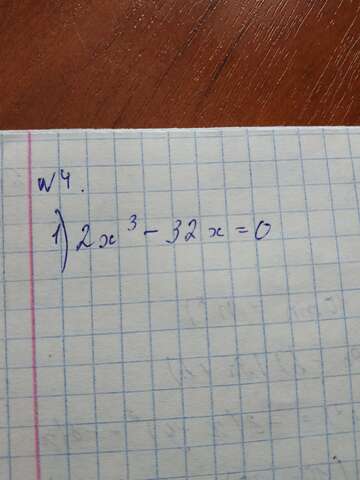 №4.
1) 2x³ - 32x = 0